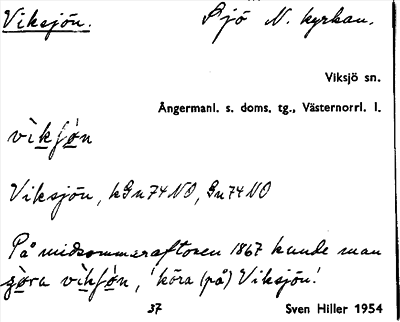 Viksjön. Sjö N. kyrkan.
Viksjö sn.
Ångermanl. s. doms. tg., Västernorrl. l.
vìkʃòn
Viksjön, kGn74NO, Gn74NO
På midsommaraftonen 1867 kunde man
gòra vìkʃòn, 'köra (på) Viksjön!
37 Sven Hiller 1954